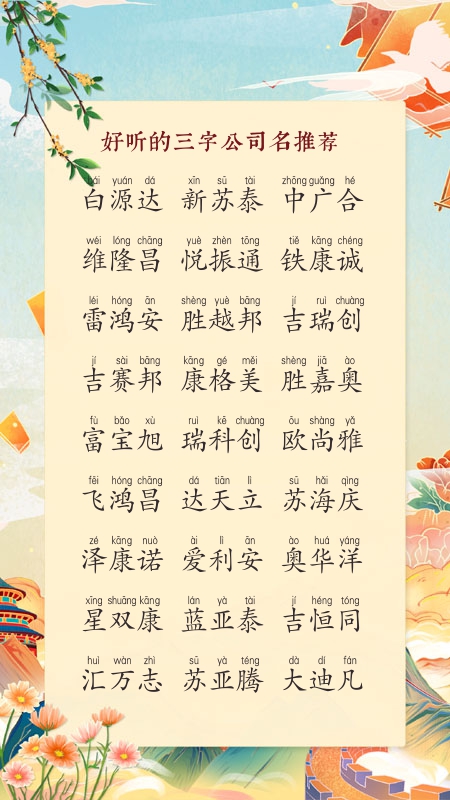 好听的三字公司名推荐
bái yuán dá xīn sū tài zhōng guǎng hé
白源达 新苏泰 中广合
wéi lóng chāng yuè zhèn tōng tiě kāng chéng
维隆昌 悦振通 铁康诚
léi hóng ān shèng yuè bāng jí ruì chuàng
雷鸿安 胜越邦 吉瑞创
jí sài bāng kāng gé měi shèng jiā ào
吉赛邦 康格美 胜嘉奥
fù bǎo xù ruì kē chuàng ōu shàng yǎ
富宝旭 瑞科创 欧尚雅
fēi hóng chāng dá tiān lì sū hǎi qìng
飞鸿昌 达天立 苏海庆
zé kāng nuò ài lì ān ào huá yáng
泽康诺 爱利安 奥华洋
xīng shuāng kāng lán yà tài jí héng tóng
星双康 蓝亚泰 吉恒同
huì wàn zhì sū yà téng dà dí fán
汇万志 苏亚腾 大迪凡